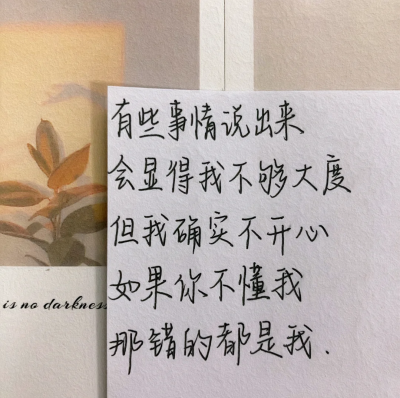 有些事情说出来
会显得我不够大度
但我确实不开心
如果你不懂我
那错的都是我.
is no darkness